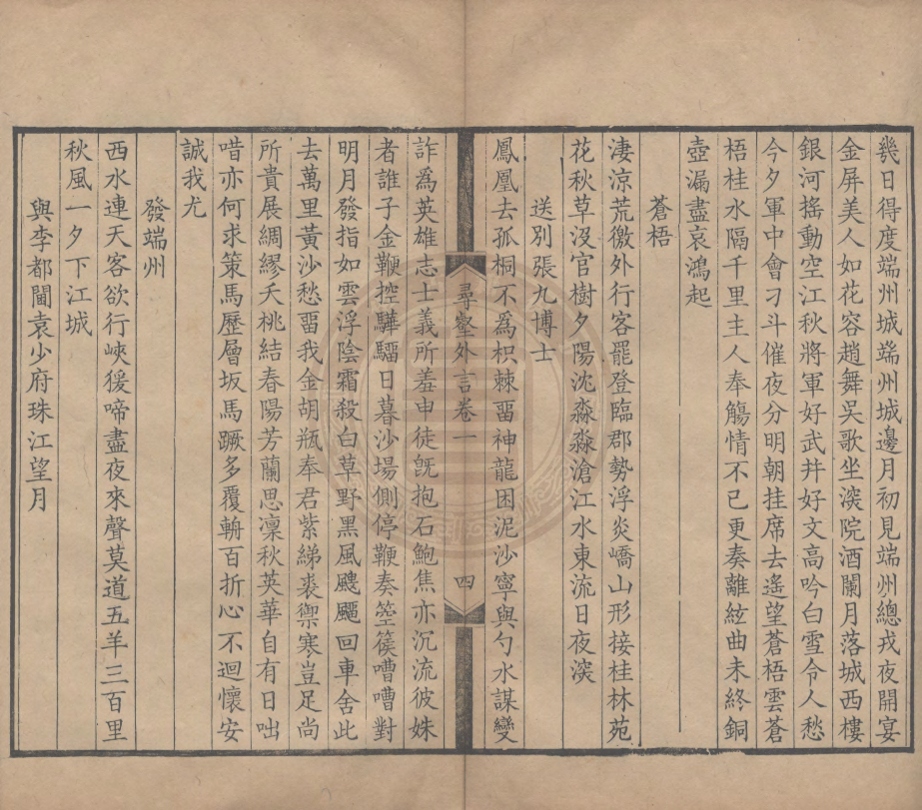 幾日得度端州城端州城邊月初見端州總戎夜開宴
金屏美人如花容趙舞吳歌坐深院酒闌月落城西樓
銀河搖動空江秋將軍好武幷好文高吟白雪令人愁
今夕軍中會刁斗催夜分明朝挂席去遙望蒼梧雲蒼
梧桂水隔千里主人奉觴情不已更奏離絃曲未終銅
壺漏盡哀鴻起
蒼梧
淒涼荒徼外行客罷登臨郡勢浮炎嶠山形接桂林苑
花秋草沒官樹夕陽沈淼淼滄江水東流日夜深
送別張九博士
鳳凰去孤桐不為枳棘畱神龍困泥沙寧與勺水謀變
尋壑外言卷一
四
詐為英雄志士義所羞申徒旣抱石鮑焦亦沉流彼姝
者誰子金鞭控驊騮日暮沙場側停鞭奏箜篌嘈嘈對
明月發指如雲浮陰霜殺白草野黑風颼飀回車舍此
去萬里黃沙愁畱我金胡瓶奉君紫綈裘禦寒豈足尚
所貴展綢繆夭桃結春陽芳蘭思凜秋英華自有日咄
唶亦何求策馬歷層坂馬蹶多覆輈百折心不迴懷安
誠我尤
發端州
西水連天客欲行峽猨啼盡夜來聲莫道五羊三百里
秋風一夕下江城
與李都閫袁少府珠江望月